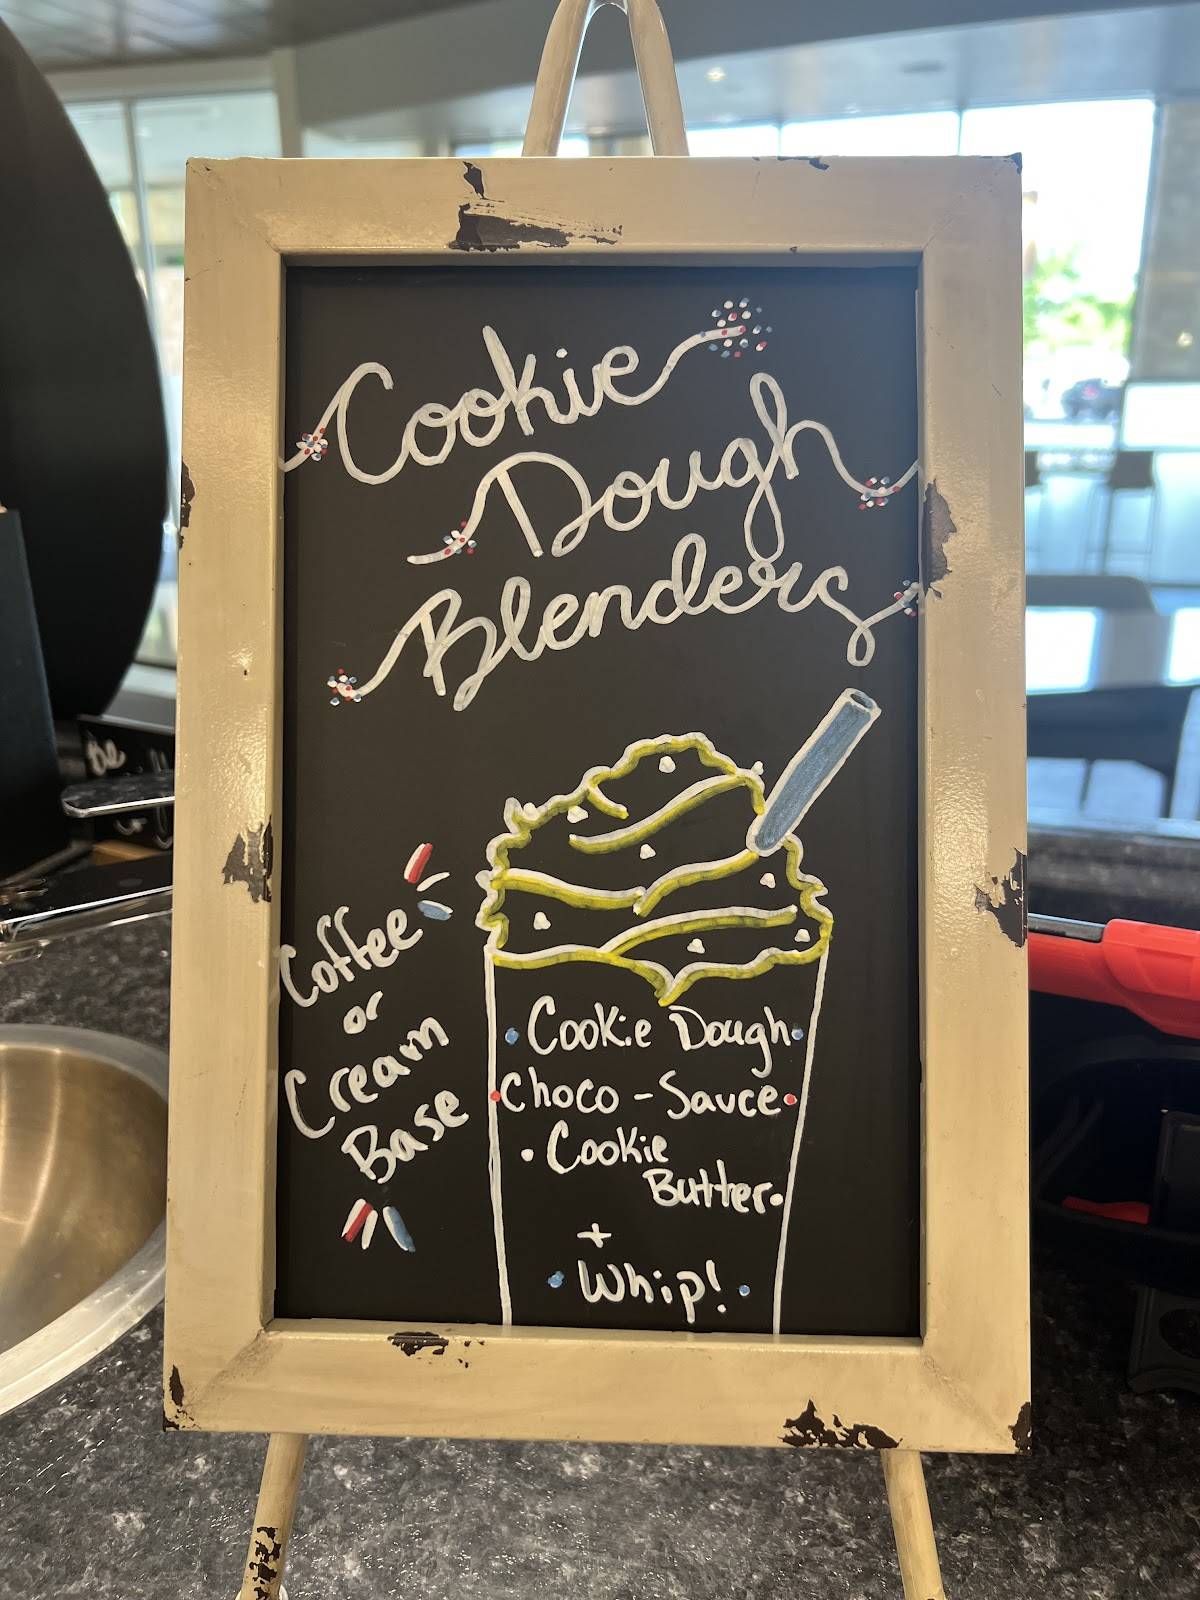 Cookie
Dough
Blenders
Coffee
or
Cream
Base
Cookie Dough
Choco-Sauce
Cookie
Butter
+
Whip!
Be